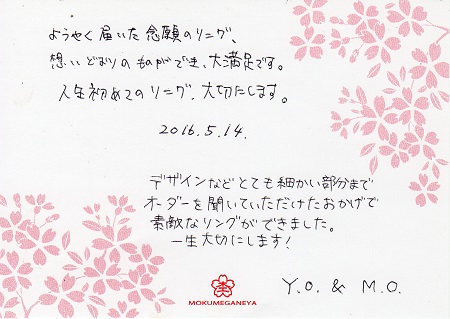 ようやく届いた念願のリング、
想いどおりのものができ、大満足です。
人生初めてのリング、大切にします。
2016.5.14.
デザインなどとても細かい部分まで
オーダーを聞いていただけたおかげで
素敵なリングができました。
一生大切にします!
Y.O. & M.O.
MOKUMEGANEYA